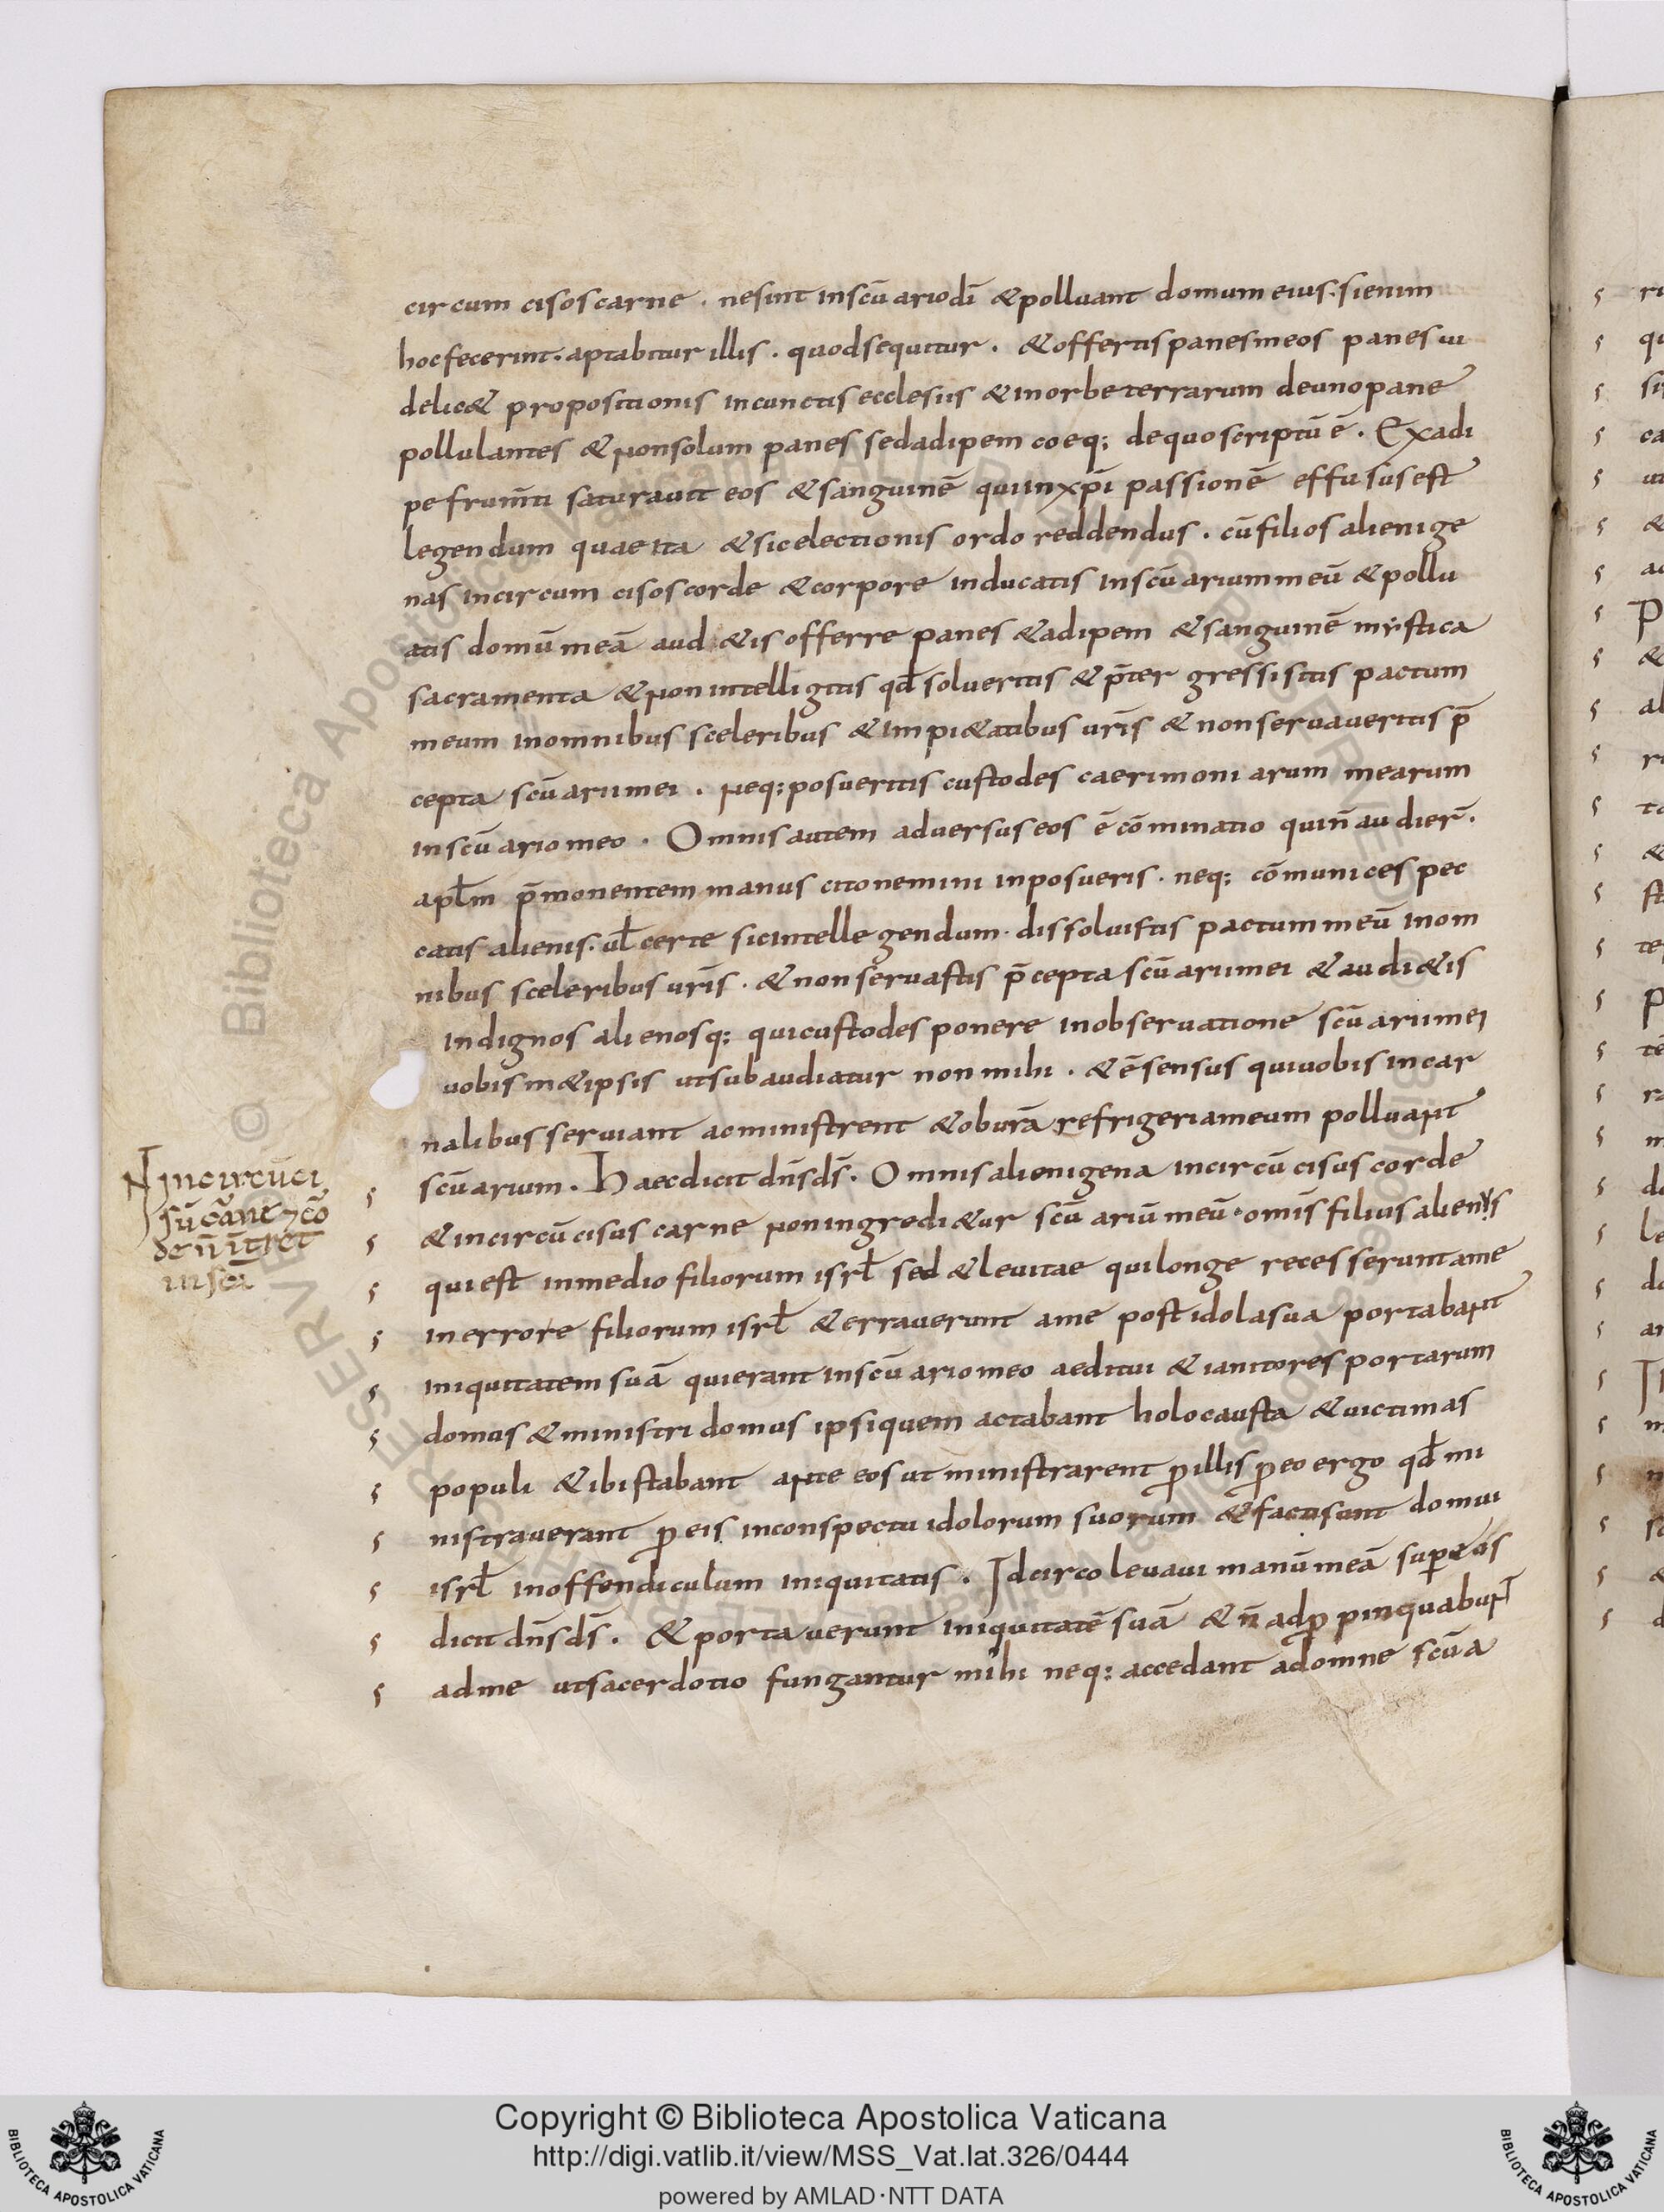 circum cisos carne . ne sint in scu̅ario di̅ & polluant domum eius. si enim
hoc fecerint. aptabitur illis . quod sequitur . & offertis panes meos panes ui
delic& propositionis in cunctis ecclesiis & in orbe terrarum de uno pane
pollulantes & non solum panes sed adipem coeq; de quo scriptu̅ e̅ . Ex adi
pe frum̅ti saturauit eos & sanguine̅ qui in xp̅i passione̅ effusus est
legendum quae ita & sic electionis ordo reddendus . cu̅ filios alienige
nas incircum cisos corde & corpore inducatis in scu̅arium meu̅ & pollu
atis domu̅ mea̅ aud&is offerre panes & adipem & sanguine̅ mystica
sacramenta & non intelligitis qd̅ soluertis & p̅ter gressi sitis pactum
meum in omnibus sceleribus & impi&atibus ur̅is & non seruaueritis p̅
cepta scu̅arii mei . neq; posueritis custodes caerimoniarum mearum
in scu̅ario meo . Omnis autem aduersus eos e̅ co̅minatio qui n̅ audier̅ .
apl̅m p̅monentem manus cito nemini inposueris . neq; co̅munices pec
catis alienis. ul̅ certe sic intellegendum. dissoluistis pactum meu̅ in om
nibus sceleribus ur̅is . & non seruastis p̅cepta scu̅arii mei & audi&is
indignos alienosq; qui custodes ponere in obseruatione scu̅arii mei
uobis m&ipsis ut subaudiatur non mihi . & e̅ sensus qui uobis in car
nalibus seruiant acministrent & ob ur̅a̅ refrigeria meum polluant
scu̅arium . Haec dicit dn̅s ds̅ . Omnis alienigena incircu̅cisus corde
& incircu̅cisus carne non ingredi&ur scu̅ariu̅ meu̅ . omis̅ filius alienus
qui est in medio filiorum isrl̅ sed & leuitae qui longe recesserunt a me
in errore filiorum isrl̅ & errauerunt a me post idola sua portabant
iniquitatem sua̅ qui erant in scu̅ario meo aeditui & ianitores portarum
domus & ministri domus ipsi quem actabant holocausta & uictimas
populi & ibi stabant ante eos ut ministrarent p̅ illis p̅ eo ergo qd̅ mi
nistrauerant p̅ eis in conspectu idolorum suorum & facti sunt domui
isrl̅ in offendiculum iniquitatis . Idcirco leuaui manu̅ mea̅ super eos
dicit dn̅s ds̅ . & portauerunt iniquitate̅ sua̅ & n̅ adp̅pinquabunt
ad me ut sacerdotio fungantur mihi neq; accedant ad omne scu̅a
N incircu̅ci
su̅ ca̅ne 7 co̅
de n̅ i̅tret
in sc̅i
Copyright © Biblioteca Apostolica Vaticana
http://digi.vatlib.it/view/MSS_Vat.lat.326/0444
powered by AMLAD·NTT DATA